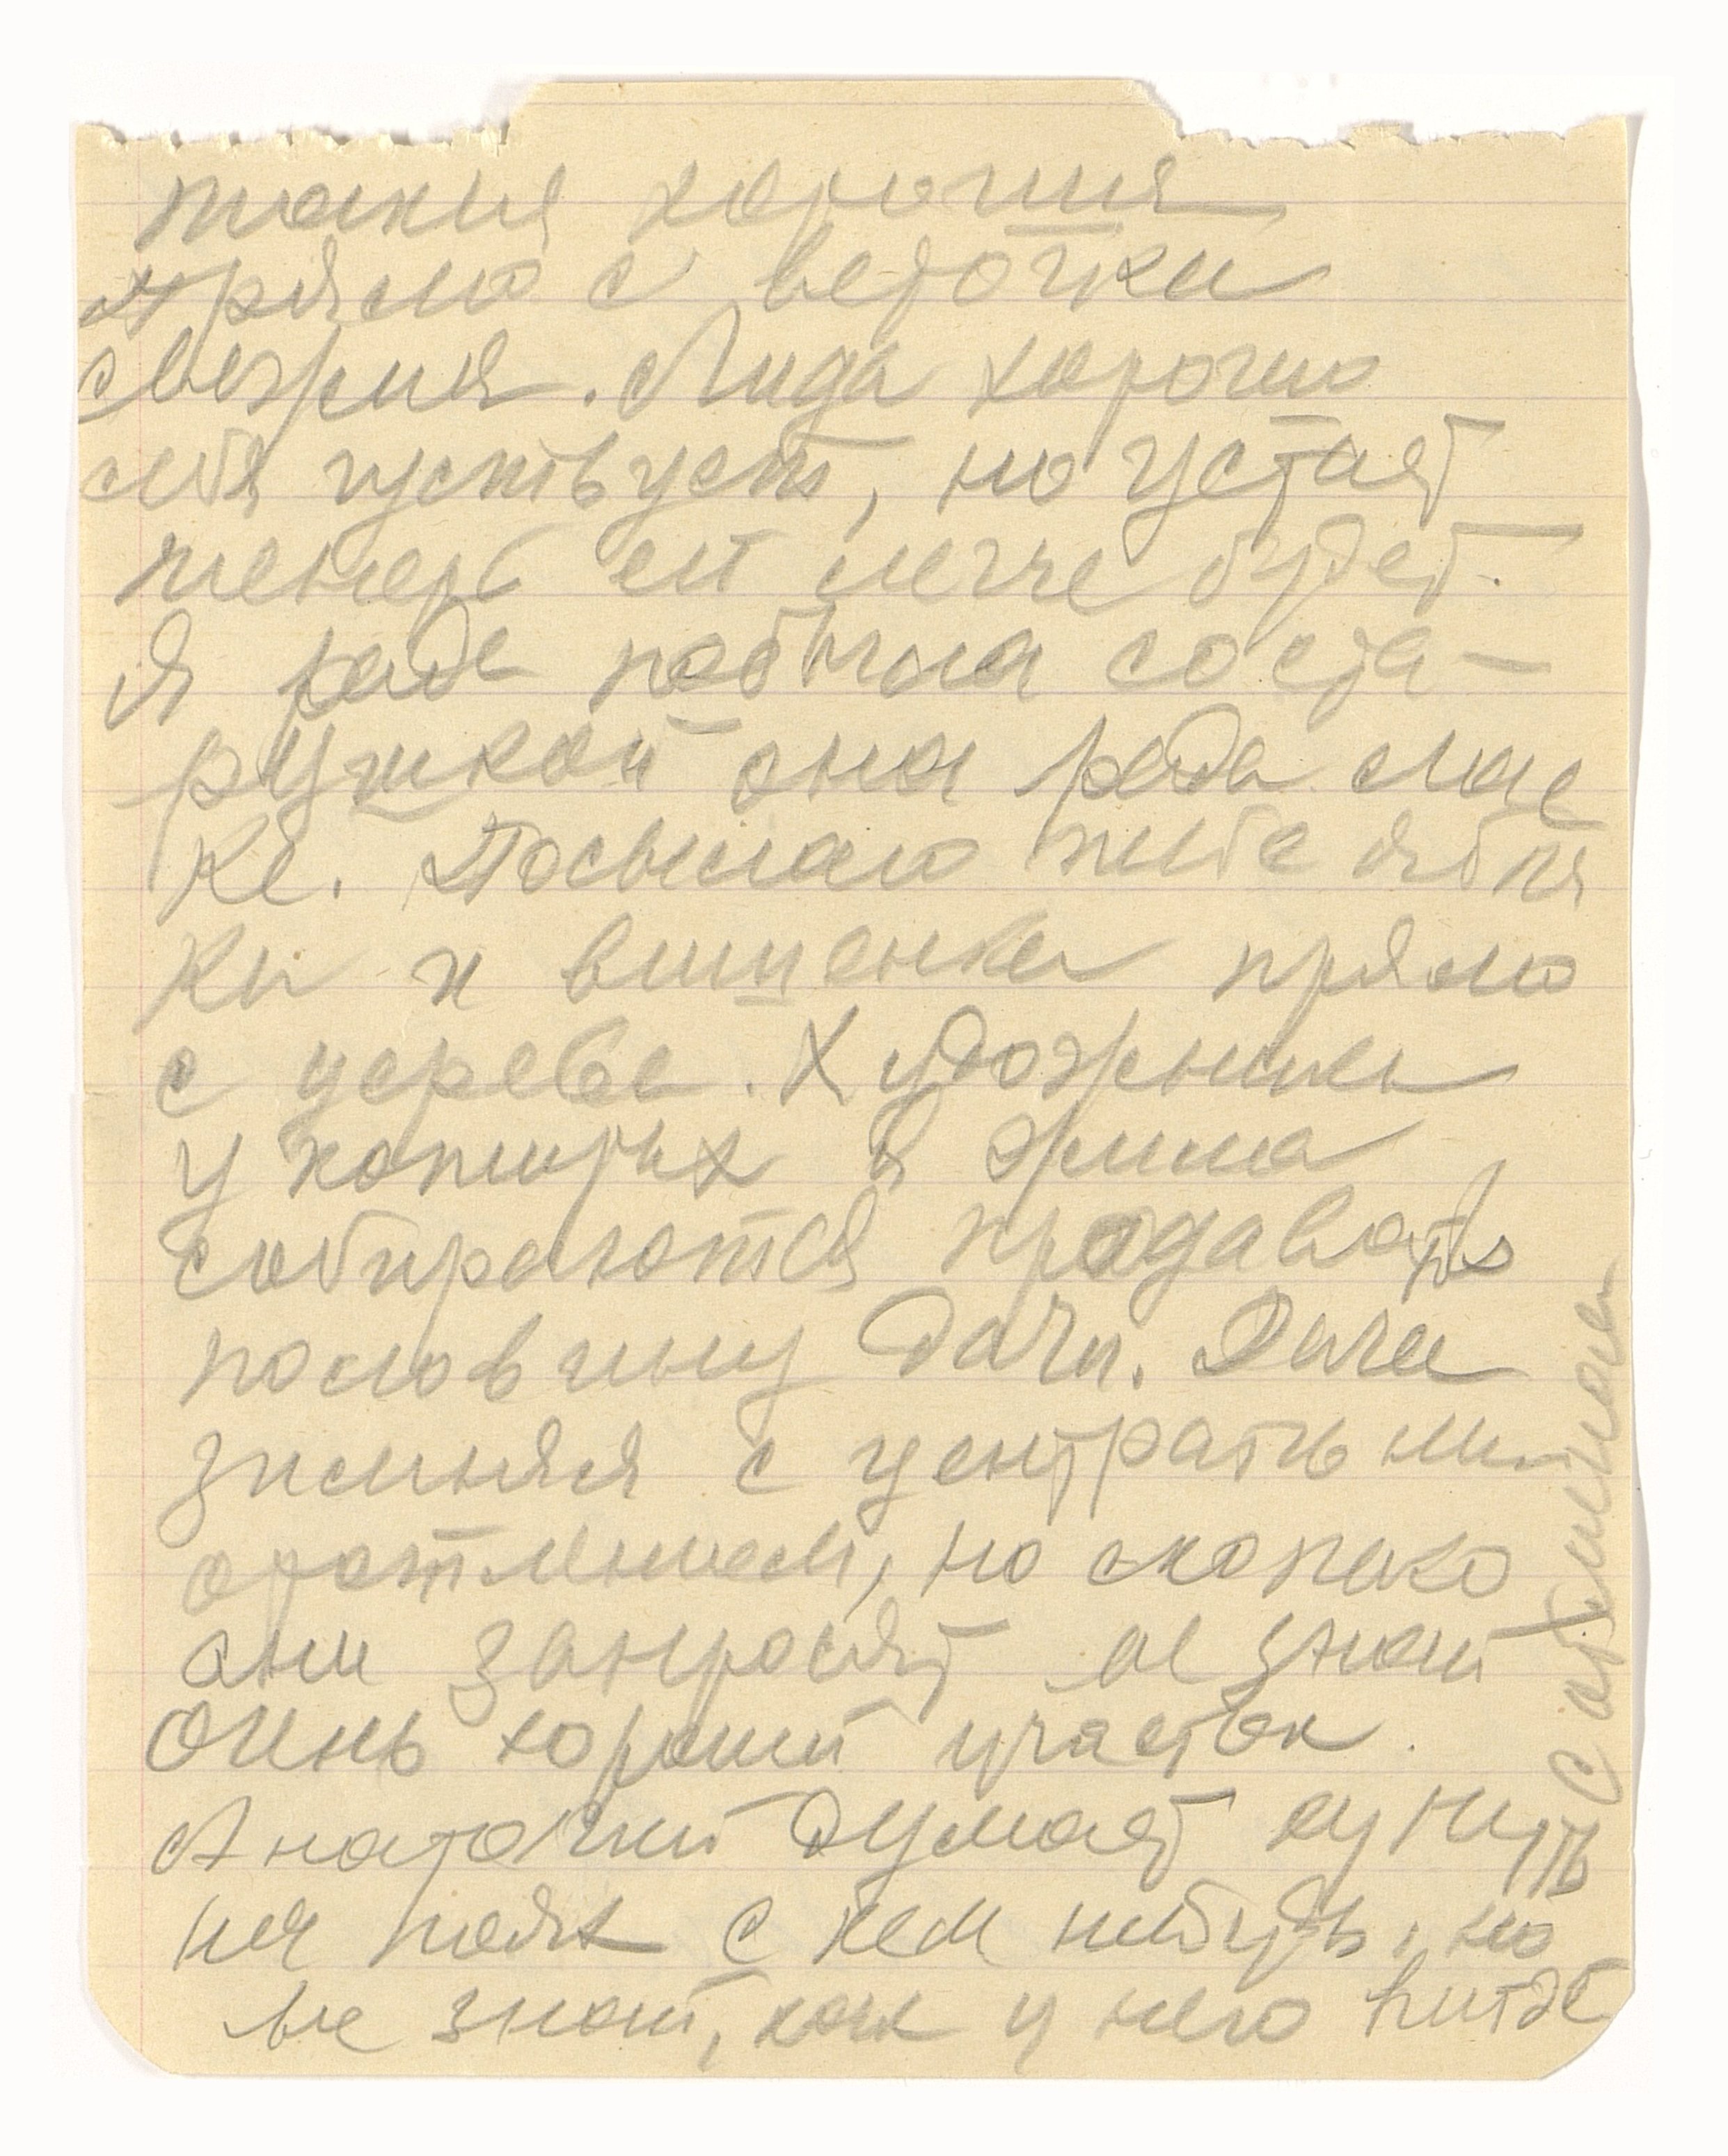 такия хорошия
прямо с веточки
свежия. Лида хорошо
себя чуствует, но устает
теперь ей легче будет.
Я рада побыла со ста-
рушкой она рада
ке. Посылаю тебе яблч
ки и вишенки прямо
с церева. Художники
у которых я жила
собираются продавать
половину дачи. Дача
зимняя с центральным
оротлением, но сколько
они запросят не знаю
Очень хороший участок.
Анаточий думает купить
на паях с кем нибудь, но
не знаю, как у него